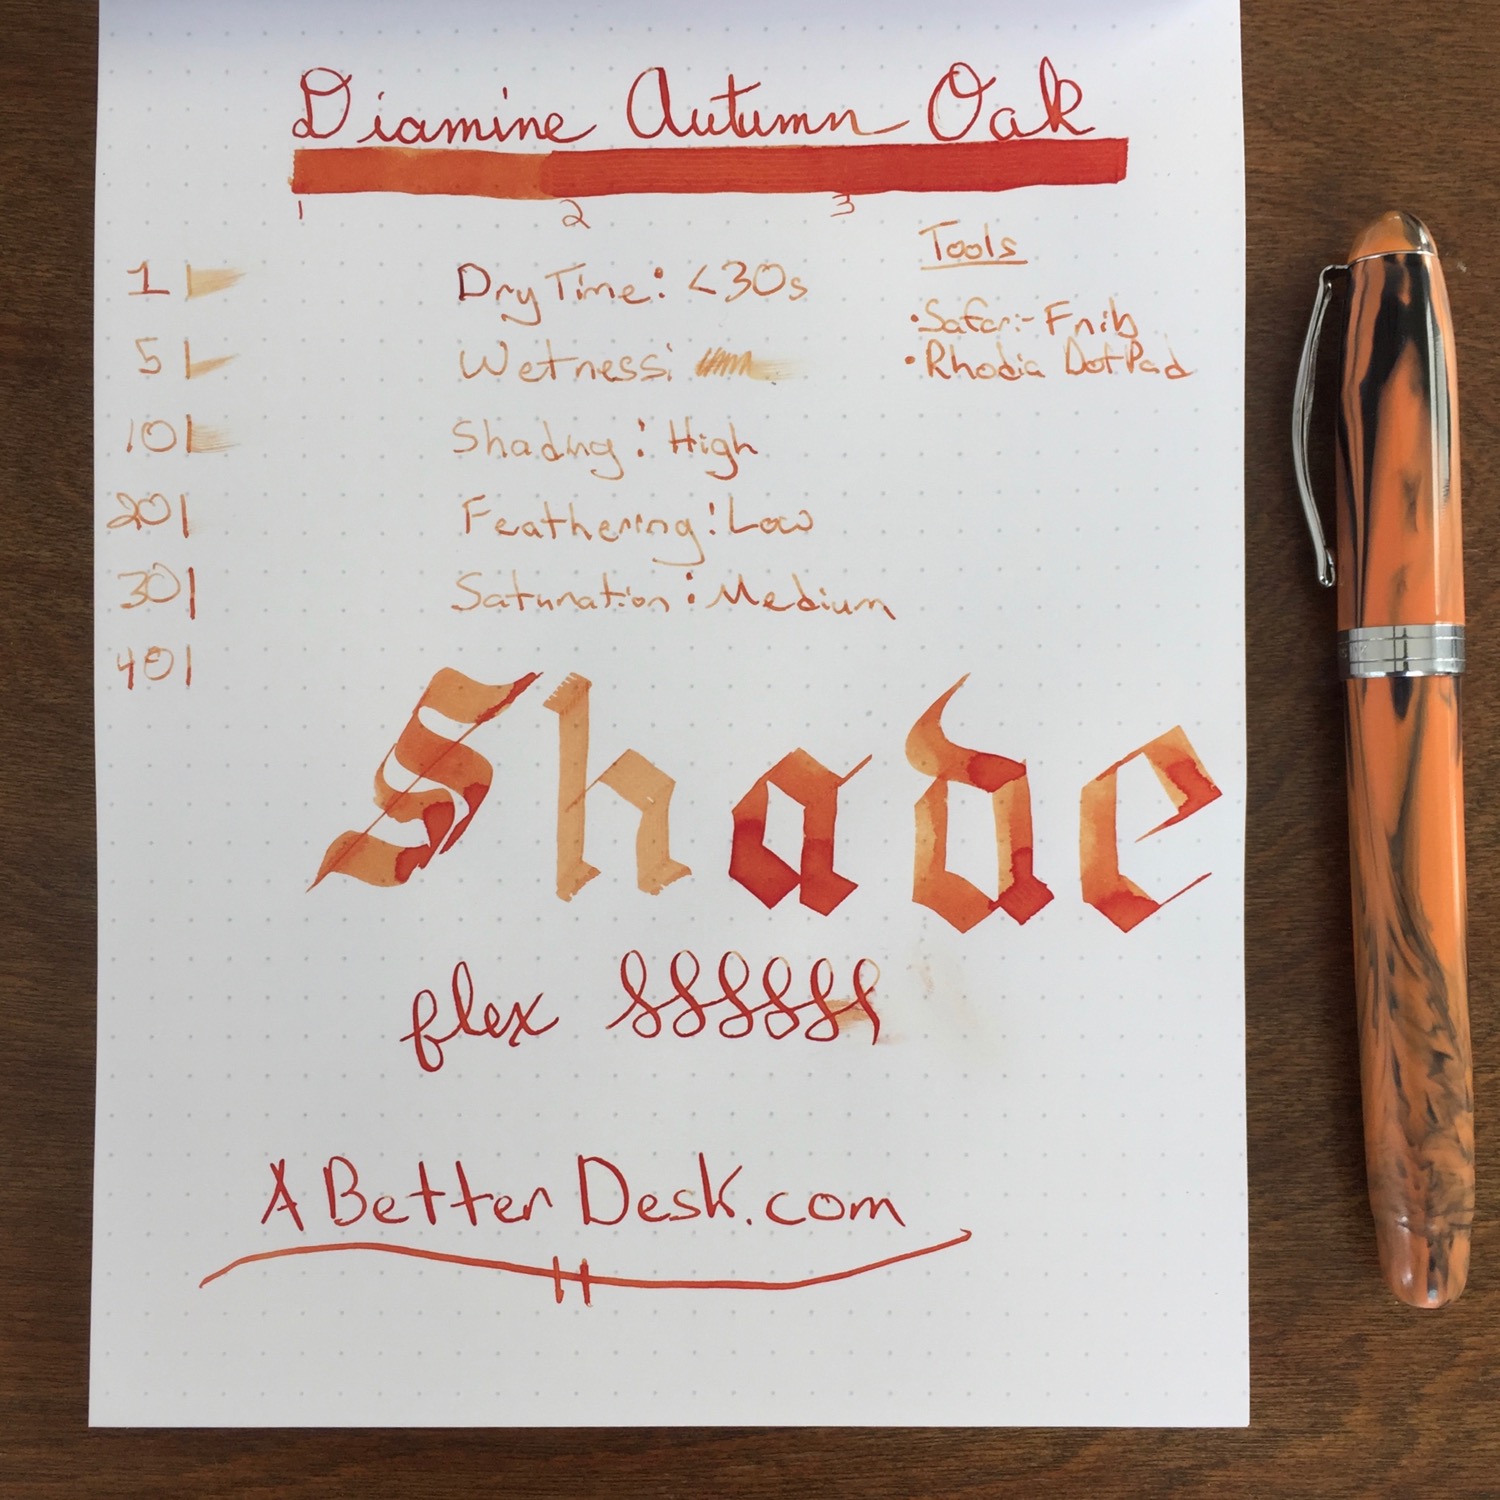 Diamine Autumn Oak
1 2 3
Tools
1 Dry Time: <30s
•Safari- F nib
5 Wetness:
•Rhodia DotPad
10 Shading: High
20 Feathering: Low
30 Saturation: Medium
40
Shade
flex
A Better Desk.com